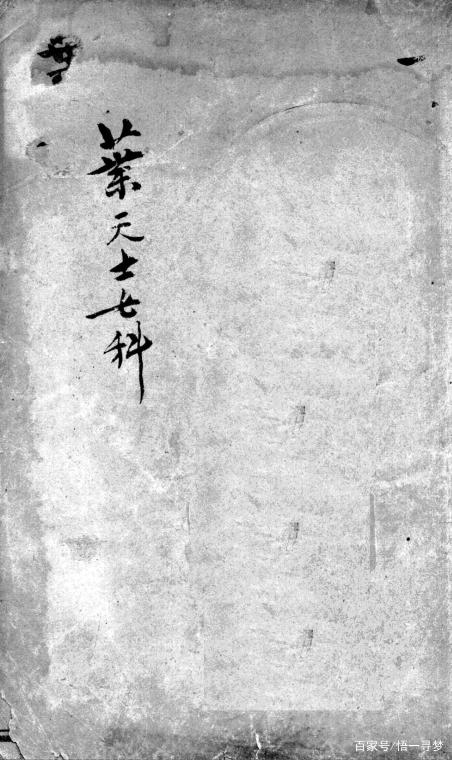 葉天士女科
百家号/悟一寻梦